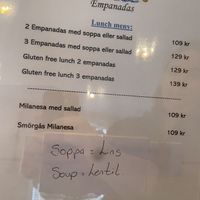 Empanadas
Lunch meny:
2 Empanadas med soppa eller sallad 109 kr
3 Empanadas med soppa eller sallad 129 kr
Gluten free lunch 2 empanadas 129 kr
Gluten free lunch 3 empanadas 139 kr
Milanesa med sallad 109 kr
Smörgås Milanesa 109 kr
Soppa = Lins
Soup = Lentil